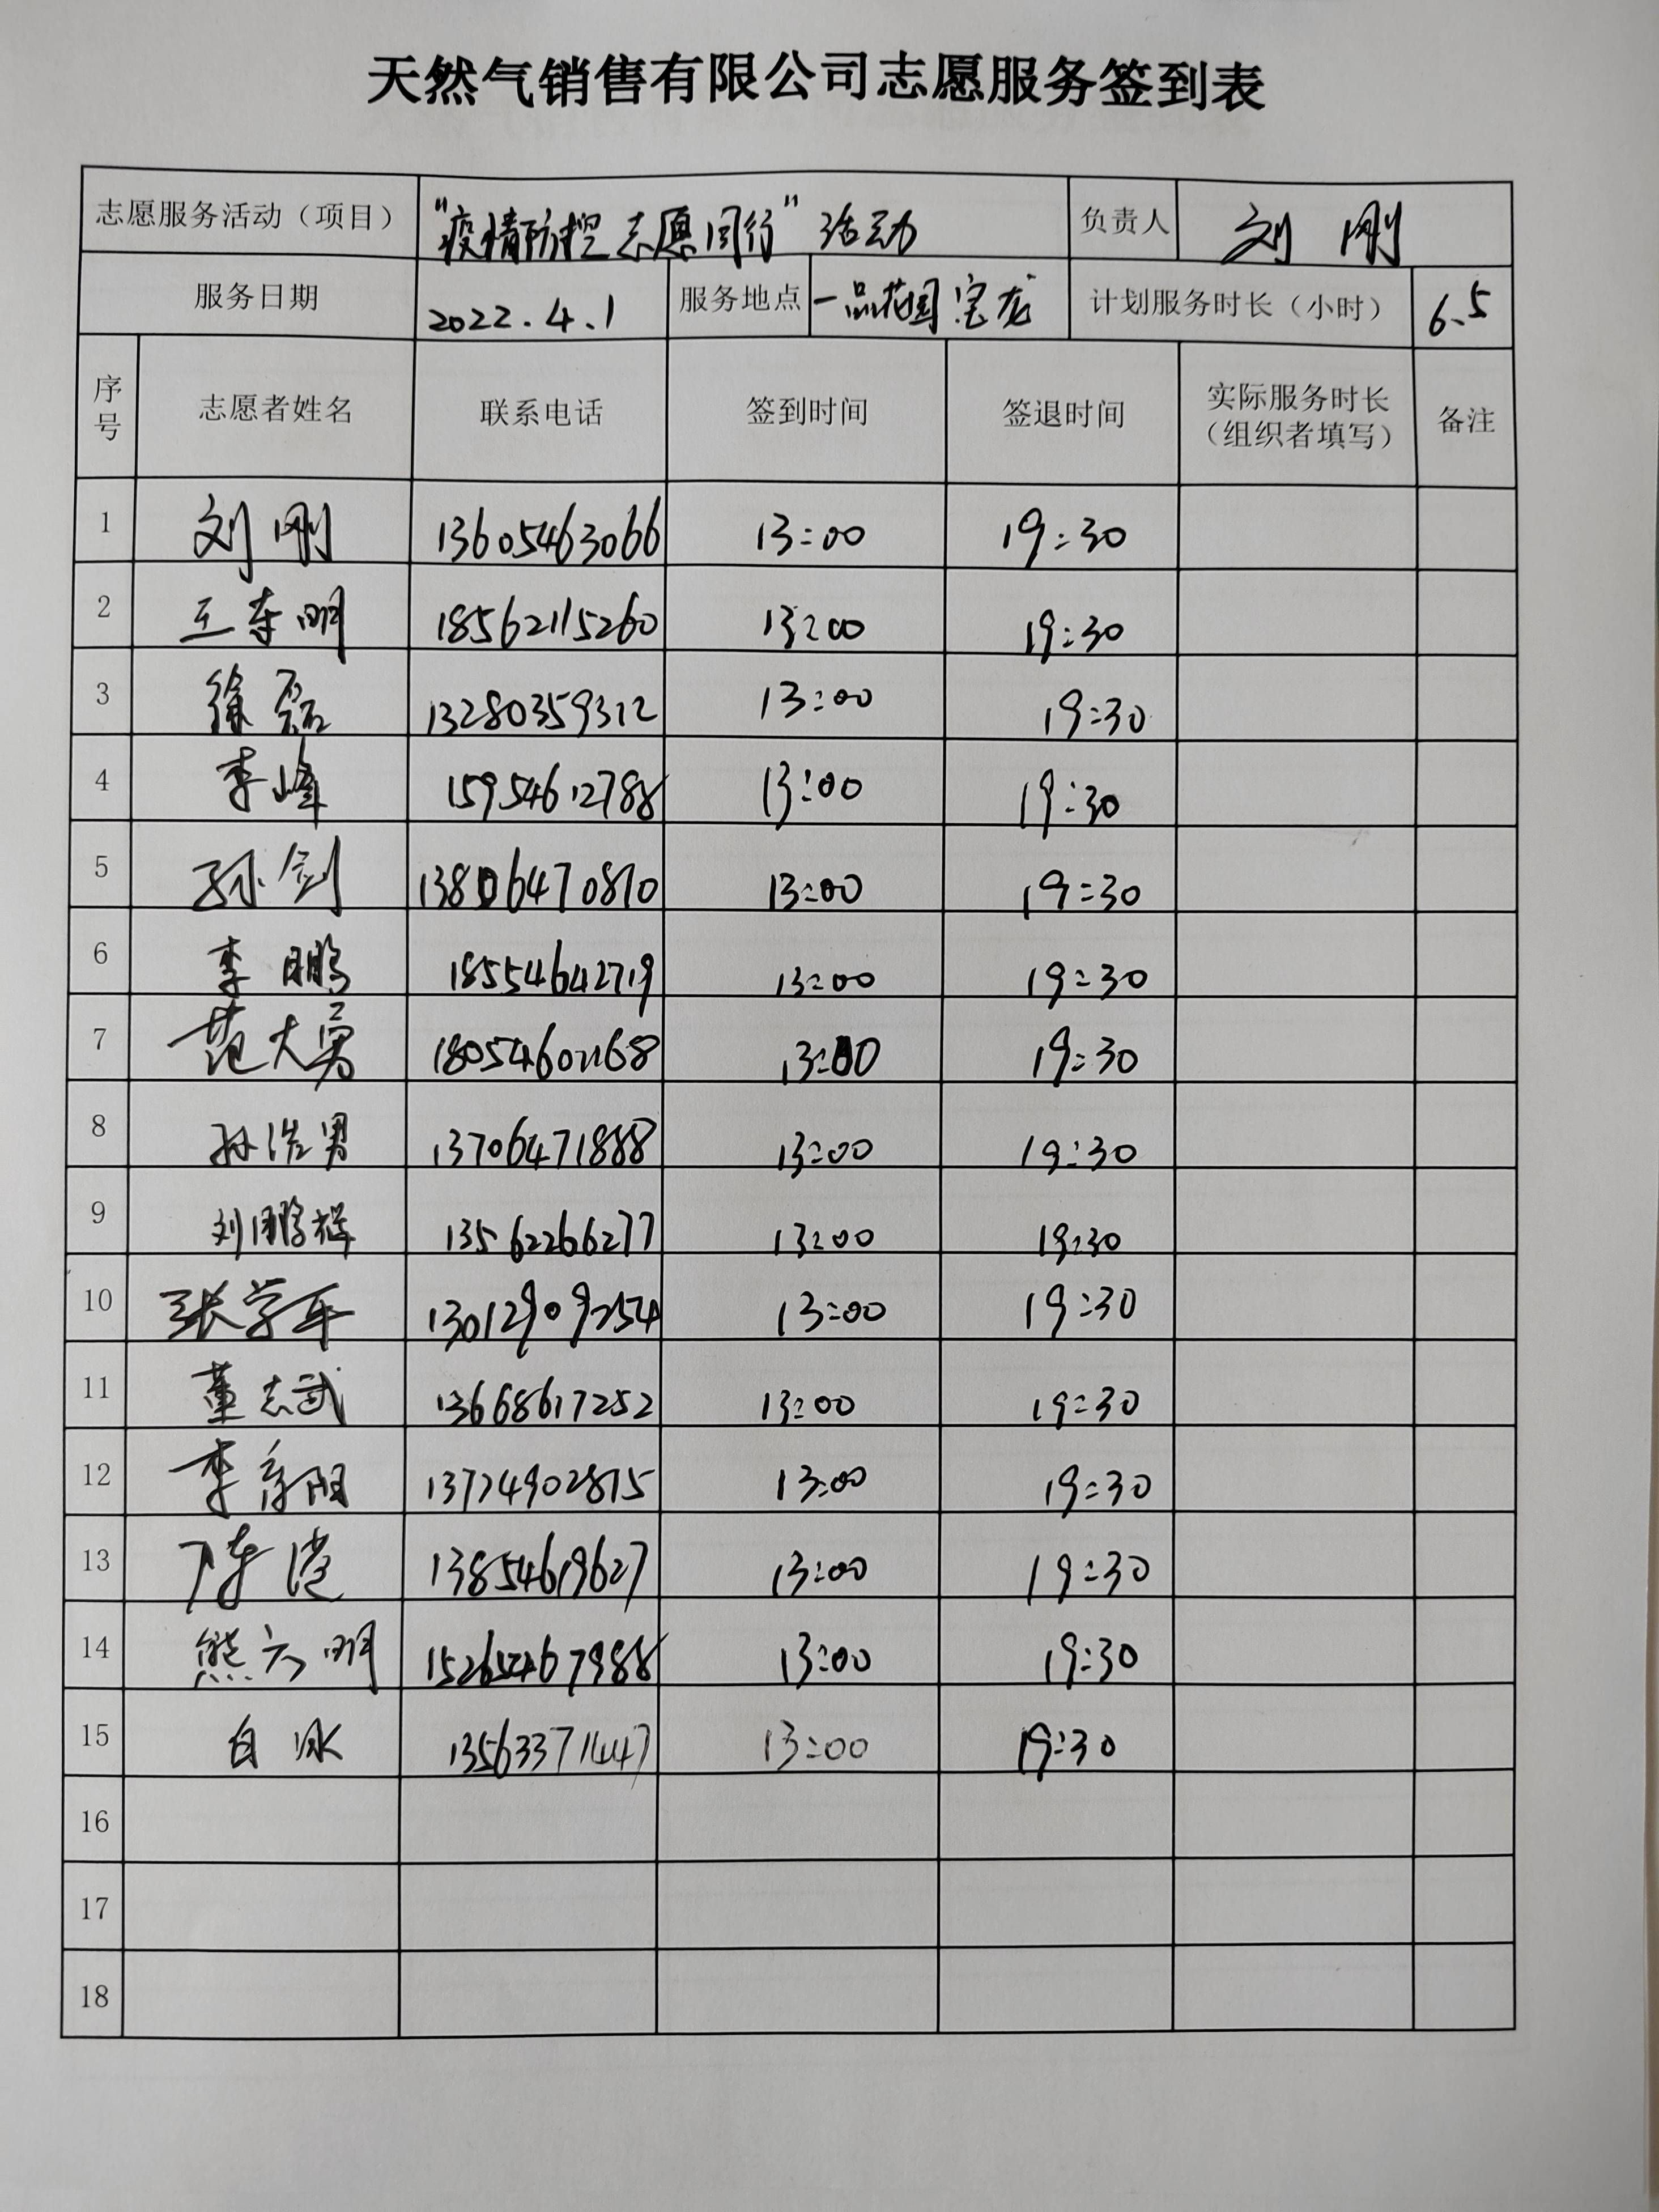 天然气销售有限公司志愿服务签到表
志愿服务活动（项目） “疫情防控 志愿同行”活动 负责人 刘 刚
服务日期 2022.4.1 服务地点 一品花园 宝龙 计划服务时长（小时） 6.5
序号 志愿者姓名 联系电话 签到时间 签退时间 实际服务时长（组织者填写） 备注
1 刘刚 13605463066 13:00 19:30
2 王东明 18562115260 13:00 19:30
3 徐磊 13280359312 13:00 19:30
4 李峰 15954612788 13:00 19:30
5 孙剑 13806470810 13:00 19:30
6 李鹏 18554642719 13:00 19:30
7 范大勇 18054601168 13:00 19:30
8 孙浩男 13706471888 13:00 19:30
9 刘鹏辉 13562266277 13:00 19:30
10 张学军 13012909254 13:00 19:30
11 董志武 13668617252 13:00 19:30
12 李 13:00 19:30
13 陈港 13854619627 13:00 19:30
14 熊六明 15265467988 13:00 19:30
15 白冰 13563371447 13:00 19:30
16
17
18